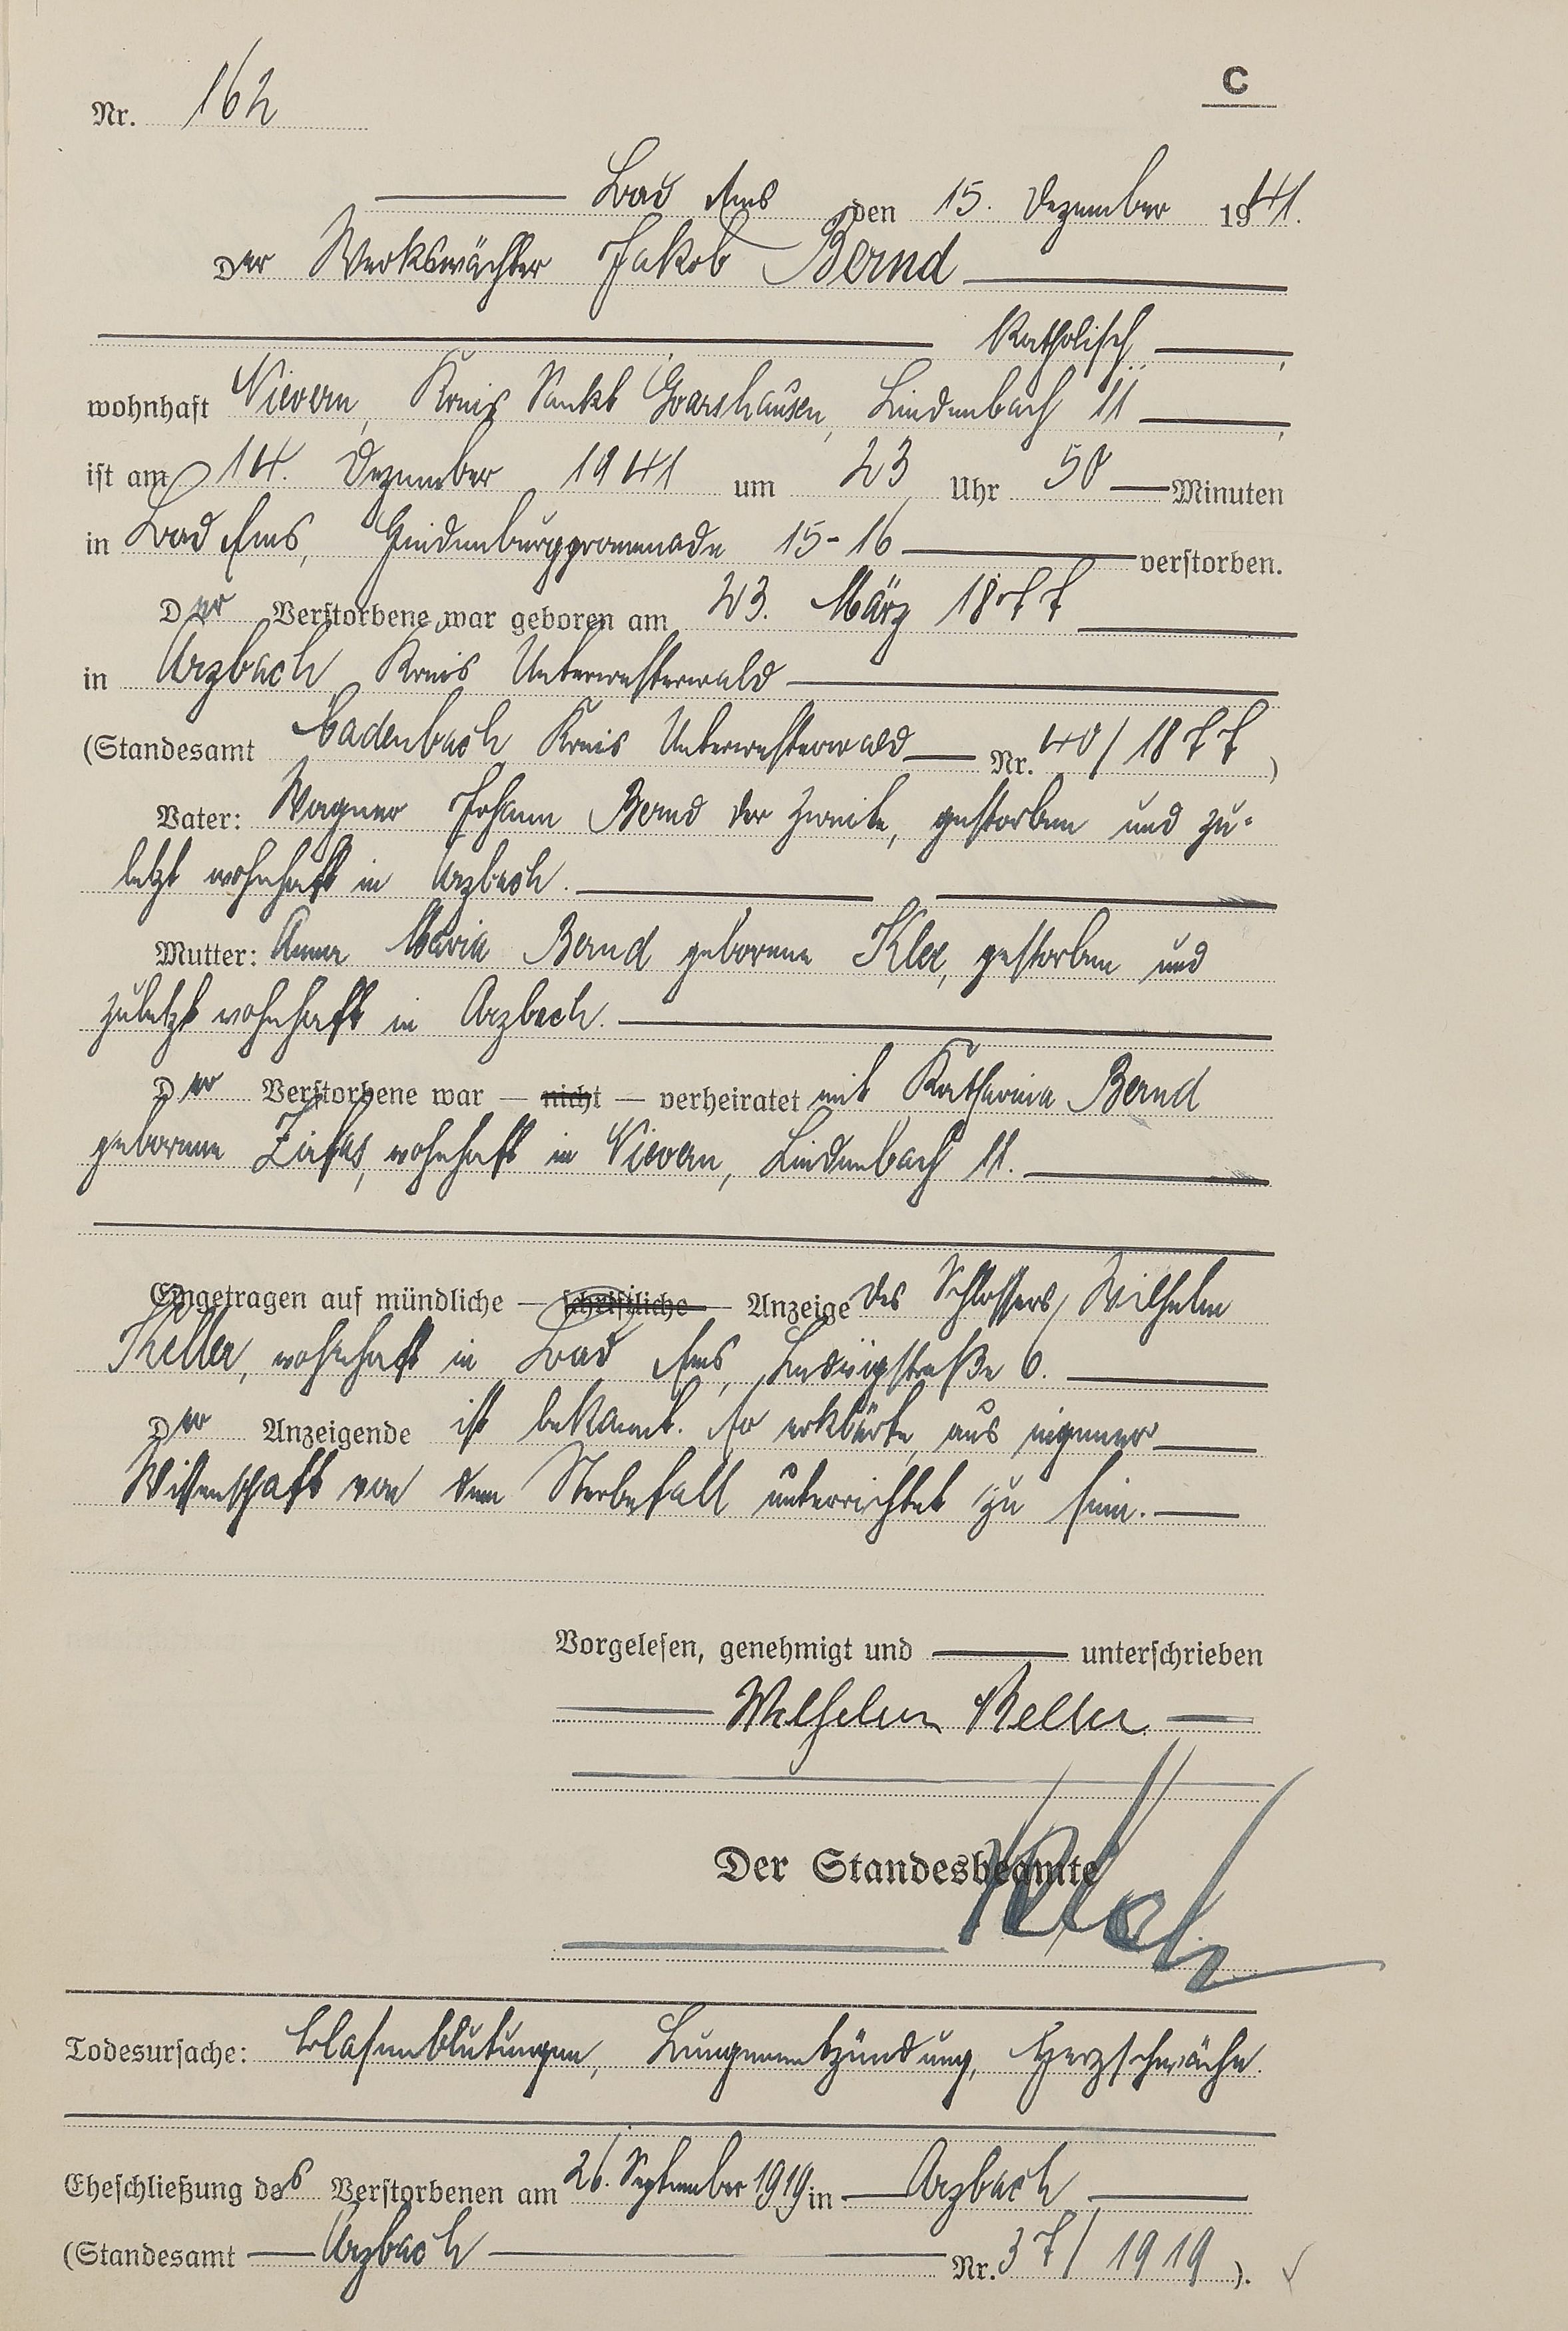 C
Nr. 162
Bad Ems den 15. Dezember 1941.
Der Werkswächter Jakob Bernd
Katholisch,
wohnhaft Nievern, Kreis Sankt Goarshausen, Lindenbach 11,
ist am 14. Dezember 1941 um 23 Uhr 50 Minuten
in Bad Ems, Hindenburgpromenade 15-16 verstorben.
Der Verstorbene war geboren am 23. März 1877
in Arzbach Kreis Unterwesterwald
(Standesamt Cadenbach Kreis Unterwesterwald Nr. 40/1877)
Vater: Wagner Johann Bernd der Zweite, gestorben und zu-
letzt wohnhaft in Arzbach.
Mutter: Anna Maria Bernd geborene Klee, gestorben und
zuletzt wohnhaft in Arzbach.
Der Verstorbene war — nicht — verheiratet mit Katharina Bernd
geborene wohnhaft in Nievern, Lindenbach 11.
Eingetragen auf mündliche — schriftliche — Anzeige des Schlossers, Wilhelm
Keller, wohnhaft in Bad Ems, Ludwigstraße 6.
Der Anzeigende ist bekannt. Er erklärte, aus eigener
Wissenschaft von dem Sterbefall unterrichtet zu sein.
Vorgelesen, genehmigt und unterschrieben
Wilhelm Keller
Der Standesbeamte
Todesursache: Blasenblutungen, Lungenentzündung, Herzschwäche.
Eheschließung des Verstorbenen am 26. September 1919 in Arzbach
(Standesamt Arzbach Nr. 37/1919).